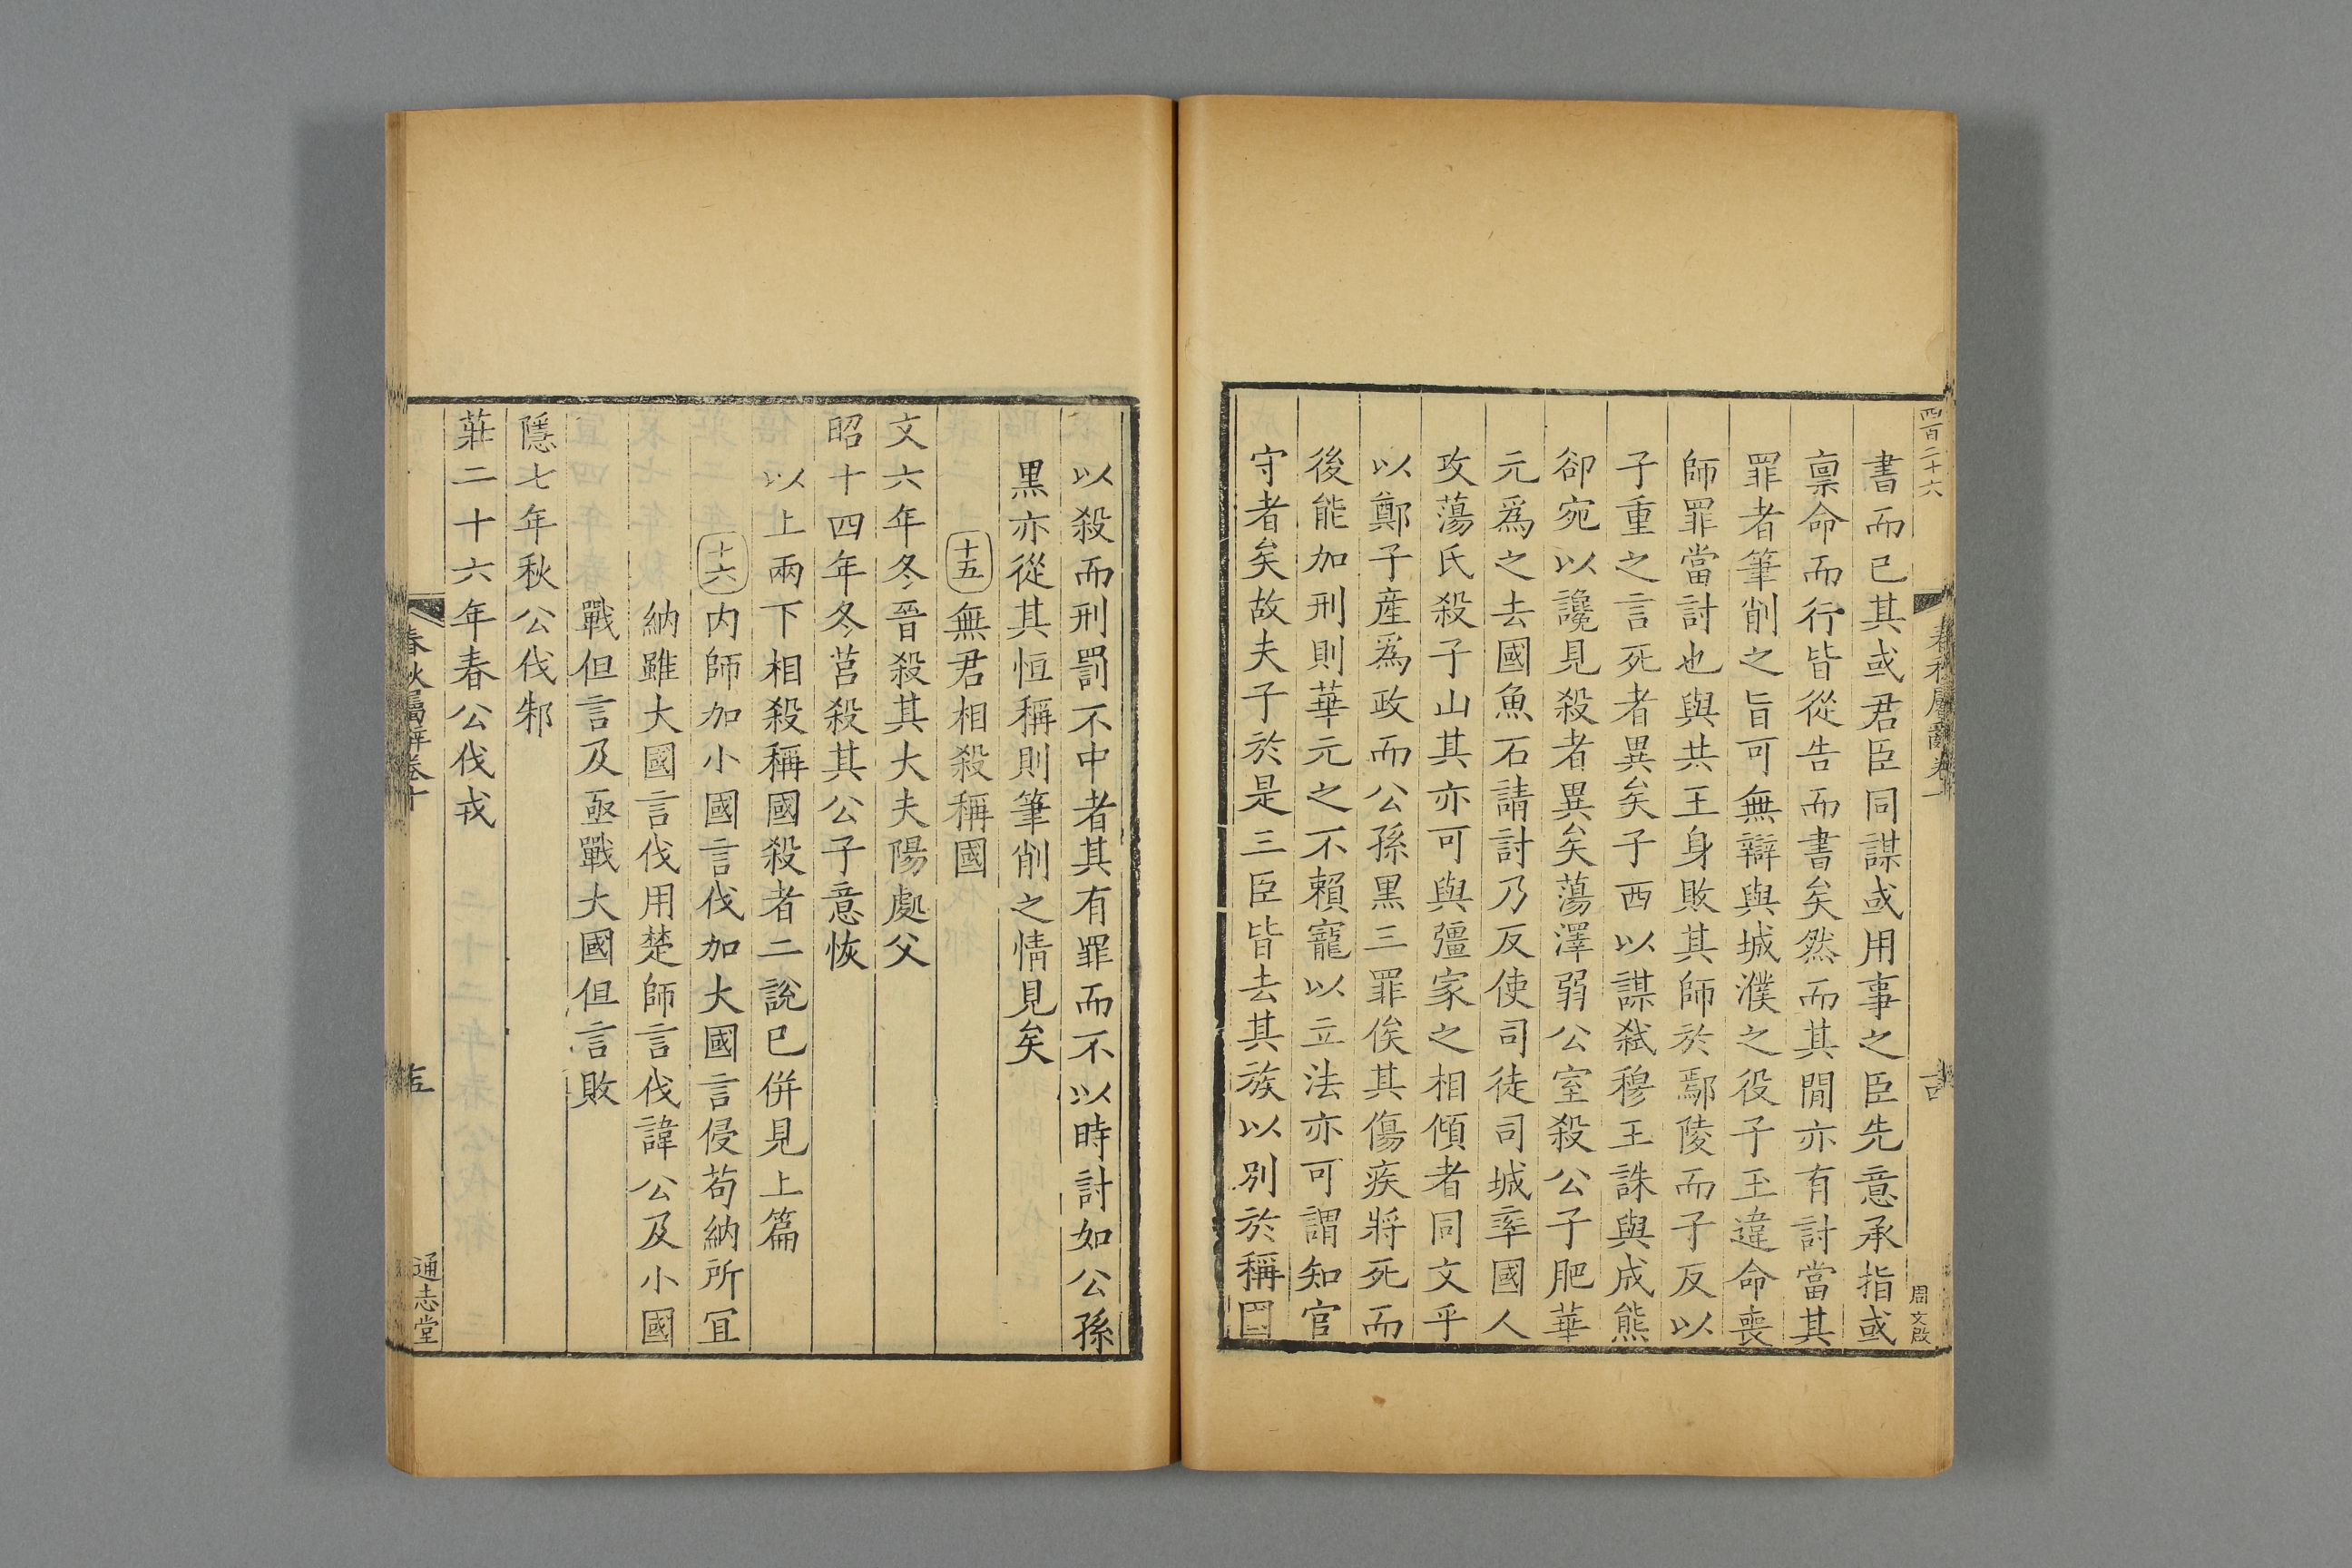 四百二十六
周文啟
書而已其或君臣同謀或用事之臣先意承指或
禀命而行皆從告而書矣然而其間亦有討當其
罪者筆削之旨可無辯與城濮之役子玉違命喪
師罪當討也與共王身敗其師於鄢陵而子反以
子重之言死者異矣子西以謀弑穆王誅與成熊
郤宛以讒見殺者異矣蕩澤弱公室殺公子肥華
元爲之去國魚石請討乃反使司徒司城率國人
攻蕩氏殺子山其亦可與彊家之相傾者同文乎
以鄭子產爲政而公孫黑三罪俟其傷疾將死而
後能加刑則華元之不賴寵以立法亦可謂知官
守者矣故夫子於是三臣皆去其族以別於稱國
以殺而刑罰不中者其有罪而不以時討如公孫
黒亦從其恒稱則筆削之情見矣
十五 無君相殺稱國
文六年冬晉殺其大夫陽處父
昭十四年冬莒殺其公子意恢
以上兩下相殺稱國殺者二說已併見上篇
十六 内師加小國言伐加大國言侵苟納所冝
納雖大國言伐用楚師言伐諱公及小國
戰但言及亟戰大國但言敗
隱七年秋公伐邾
莊二十六年春公伐戎
春秋屬辭卷十
通志堂